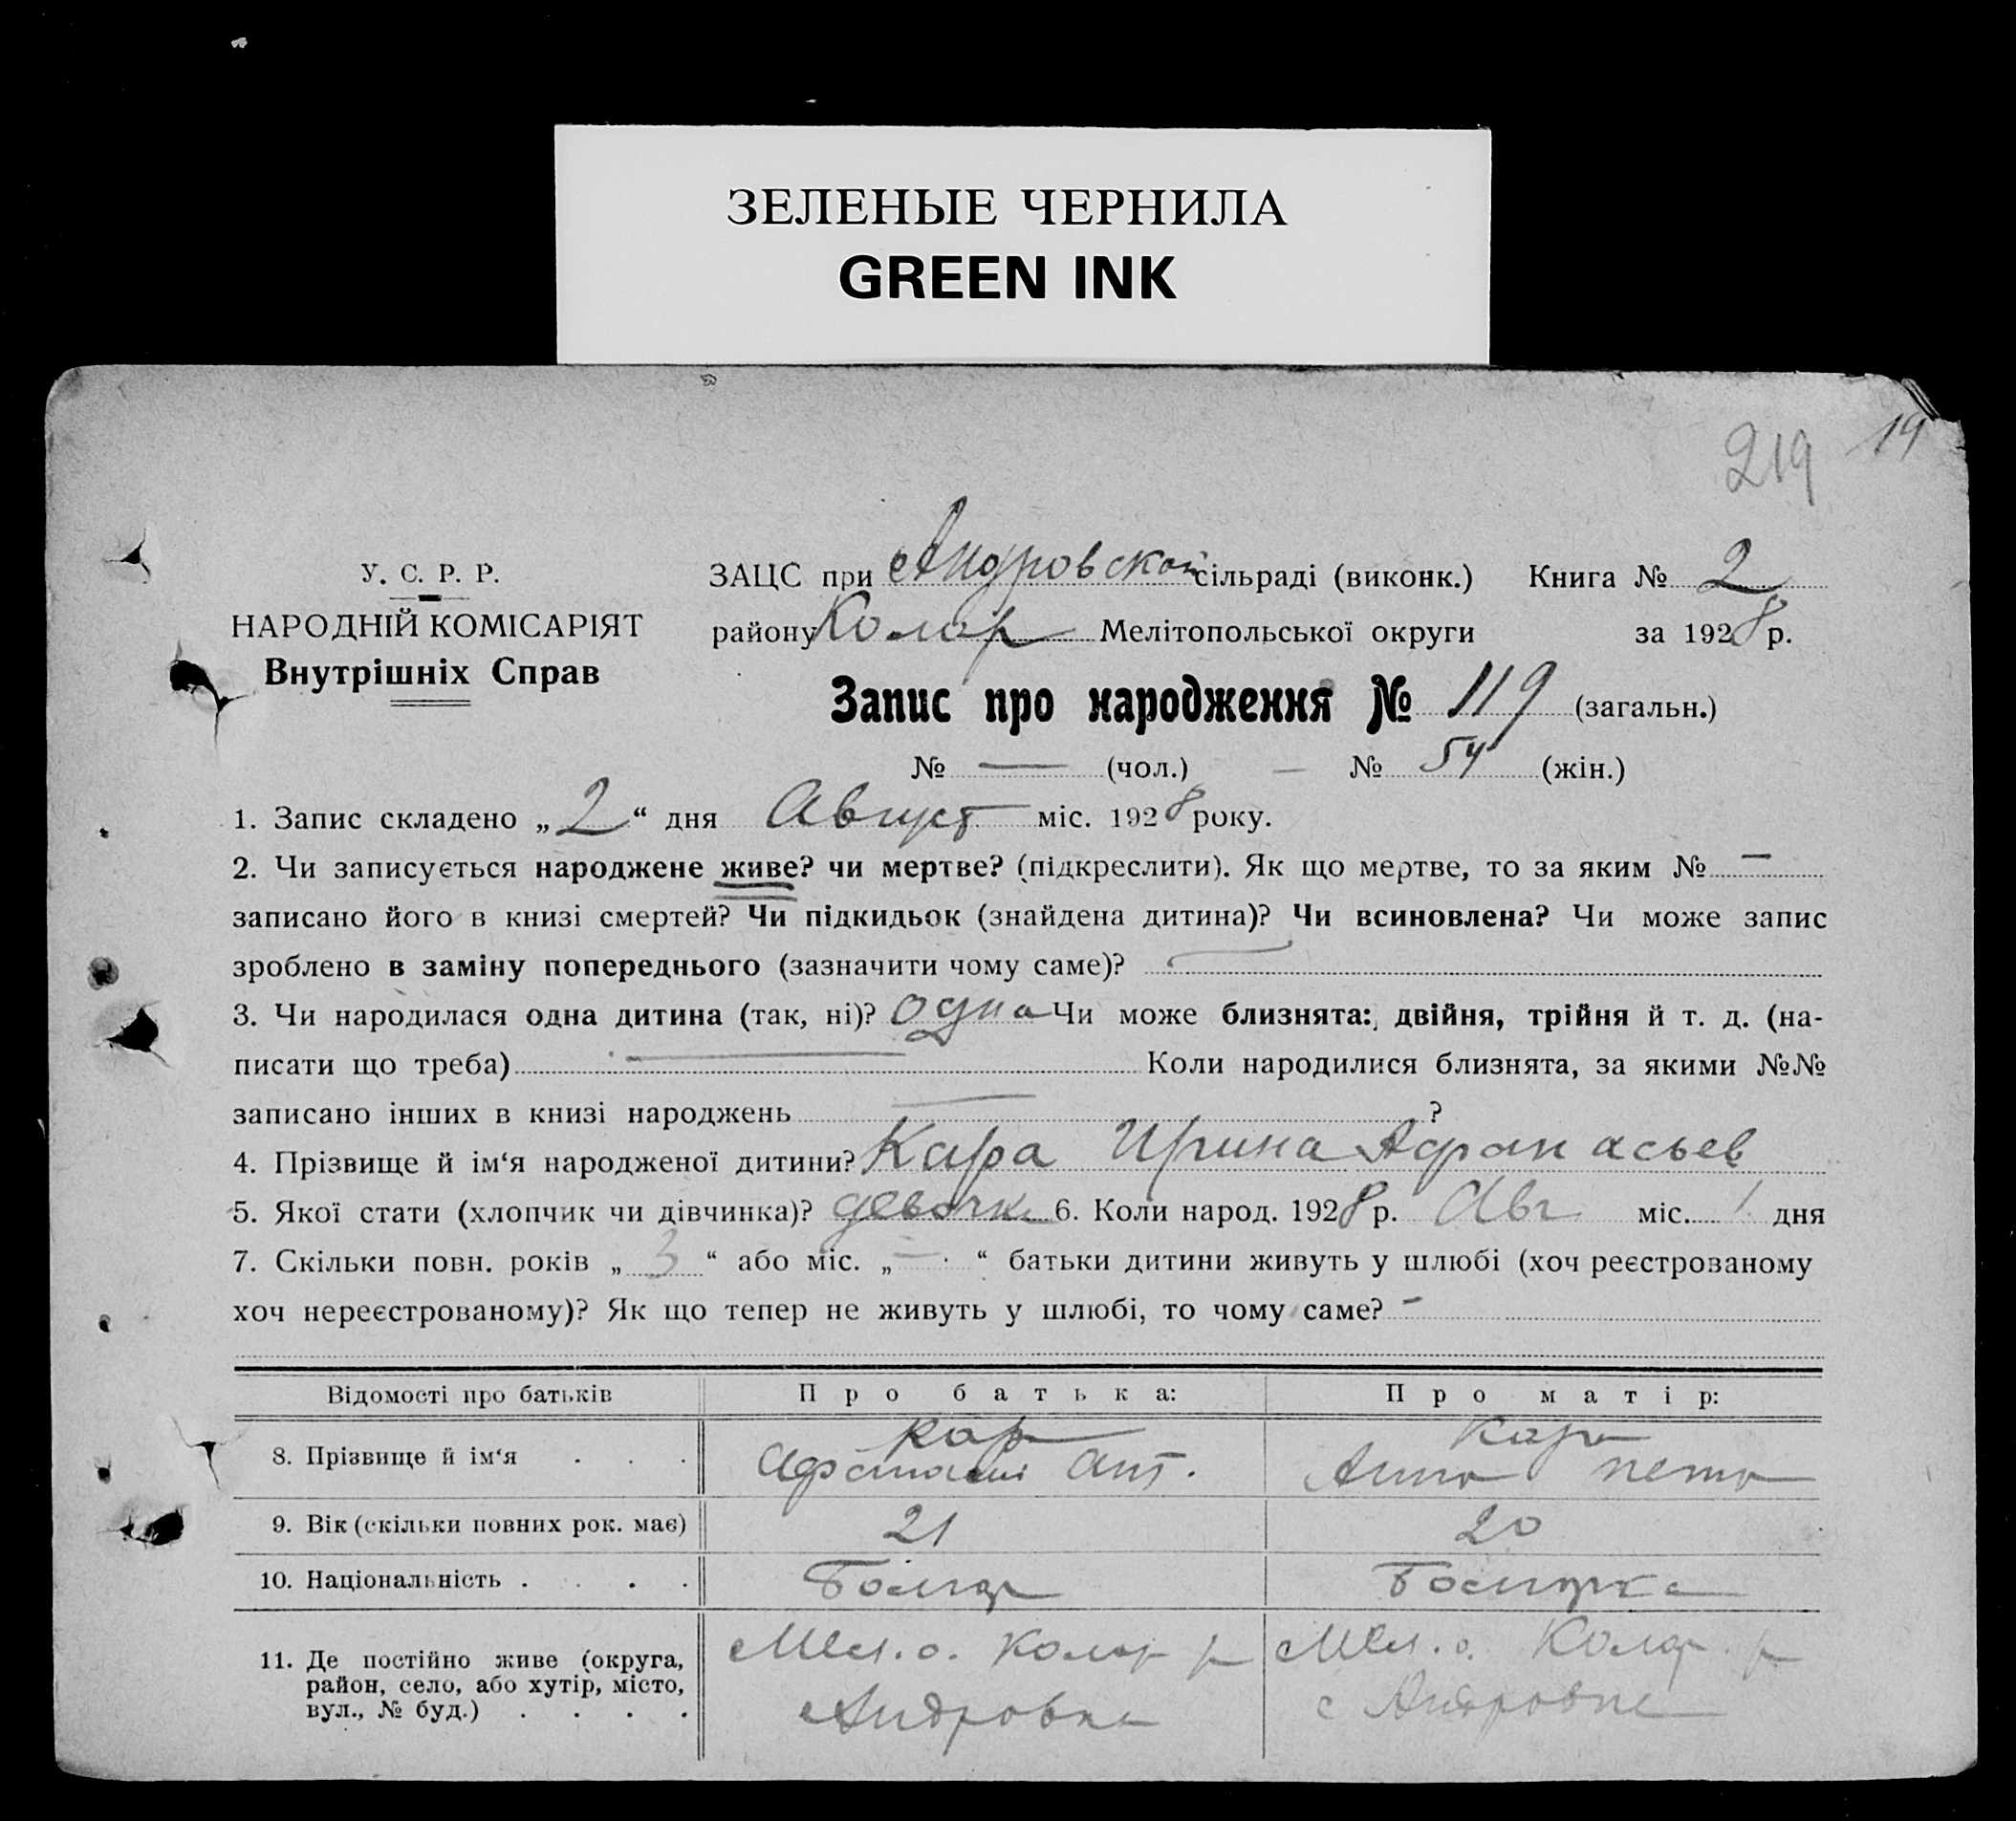 ЗЕЛЕНЫЕ ЧЕРНИЛА
GREEN INK
219 19
У. С. Р. Р.
НАРОДНІЙ КОМІСАРІЯТ
Внутрішніх Справ
ЗАЦС при Андровской сільраді (виконк.) Книга № 2
району Колар Мелітопольської округи за 1928 р.
Запис про народження № 119 (загальн.)
№ — (чол.) — № 54 (жін.)
1. Запис складено „2“ дня Август міс. 1928 року.
2. Чи записується народжене живе? чи мертве? (підкреслити). Як що мертве, то за яким № —
записано його в книзі смертей? Чи підкидьок (знайдена дитина)? Чи всиновлена? Чи може запис
зроблено в заміну попереднього (зазначити чому саме)? —
3. Чи народилася одна дитина (так, ні)? одна Чи може близнята: двійня, трійня й т. д. (на-
писати що треба) — Коли народилися близнята, за якими №№
записано інших в книзі народжень — ?
4. Прізвище й ім‘я народженої дитини? Кара Ирина Афанасьев
5. Якої стати (хлопчик чи дівчинка)? девочка 6. Коли народ. 1928 р. Авг міс. 1 дня
7. Скільки повн. років „3“ або міс. „—“ батьки дитини живуть у шлюбі (хоч реєстрованому
хоч нереєстрованому)? Як що тепер не живуть у шлюбі, то чому саме? -
Відомості про батьків Про батька: Про матір:
8. Прізвище й ім‘я . . . Кара Кара
Афанасий Ант. Анна Петр
9. Вік (скільки повних рок. має) 21 20
10. Національність . . . . Болгар Болгарка
11. Де постійно живе (округа, Мел. о. Колар р Мел. о. Колар. р
район, село, або хутір, місто,
вул., № буд.) . . . . Андровка с Андровке